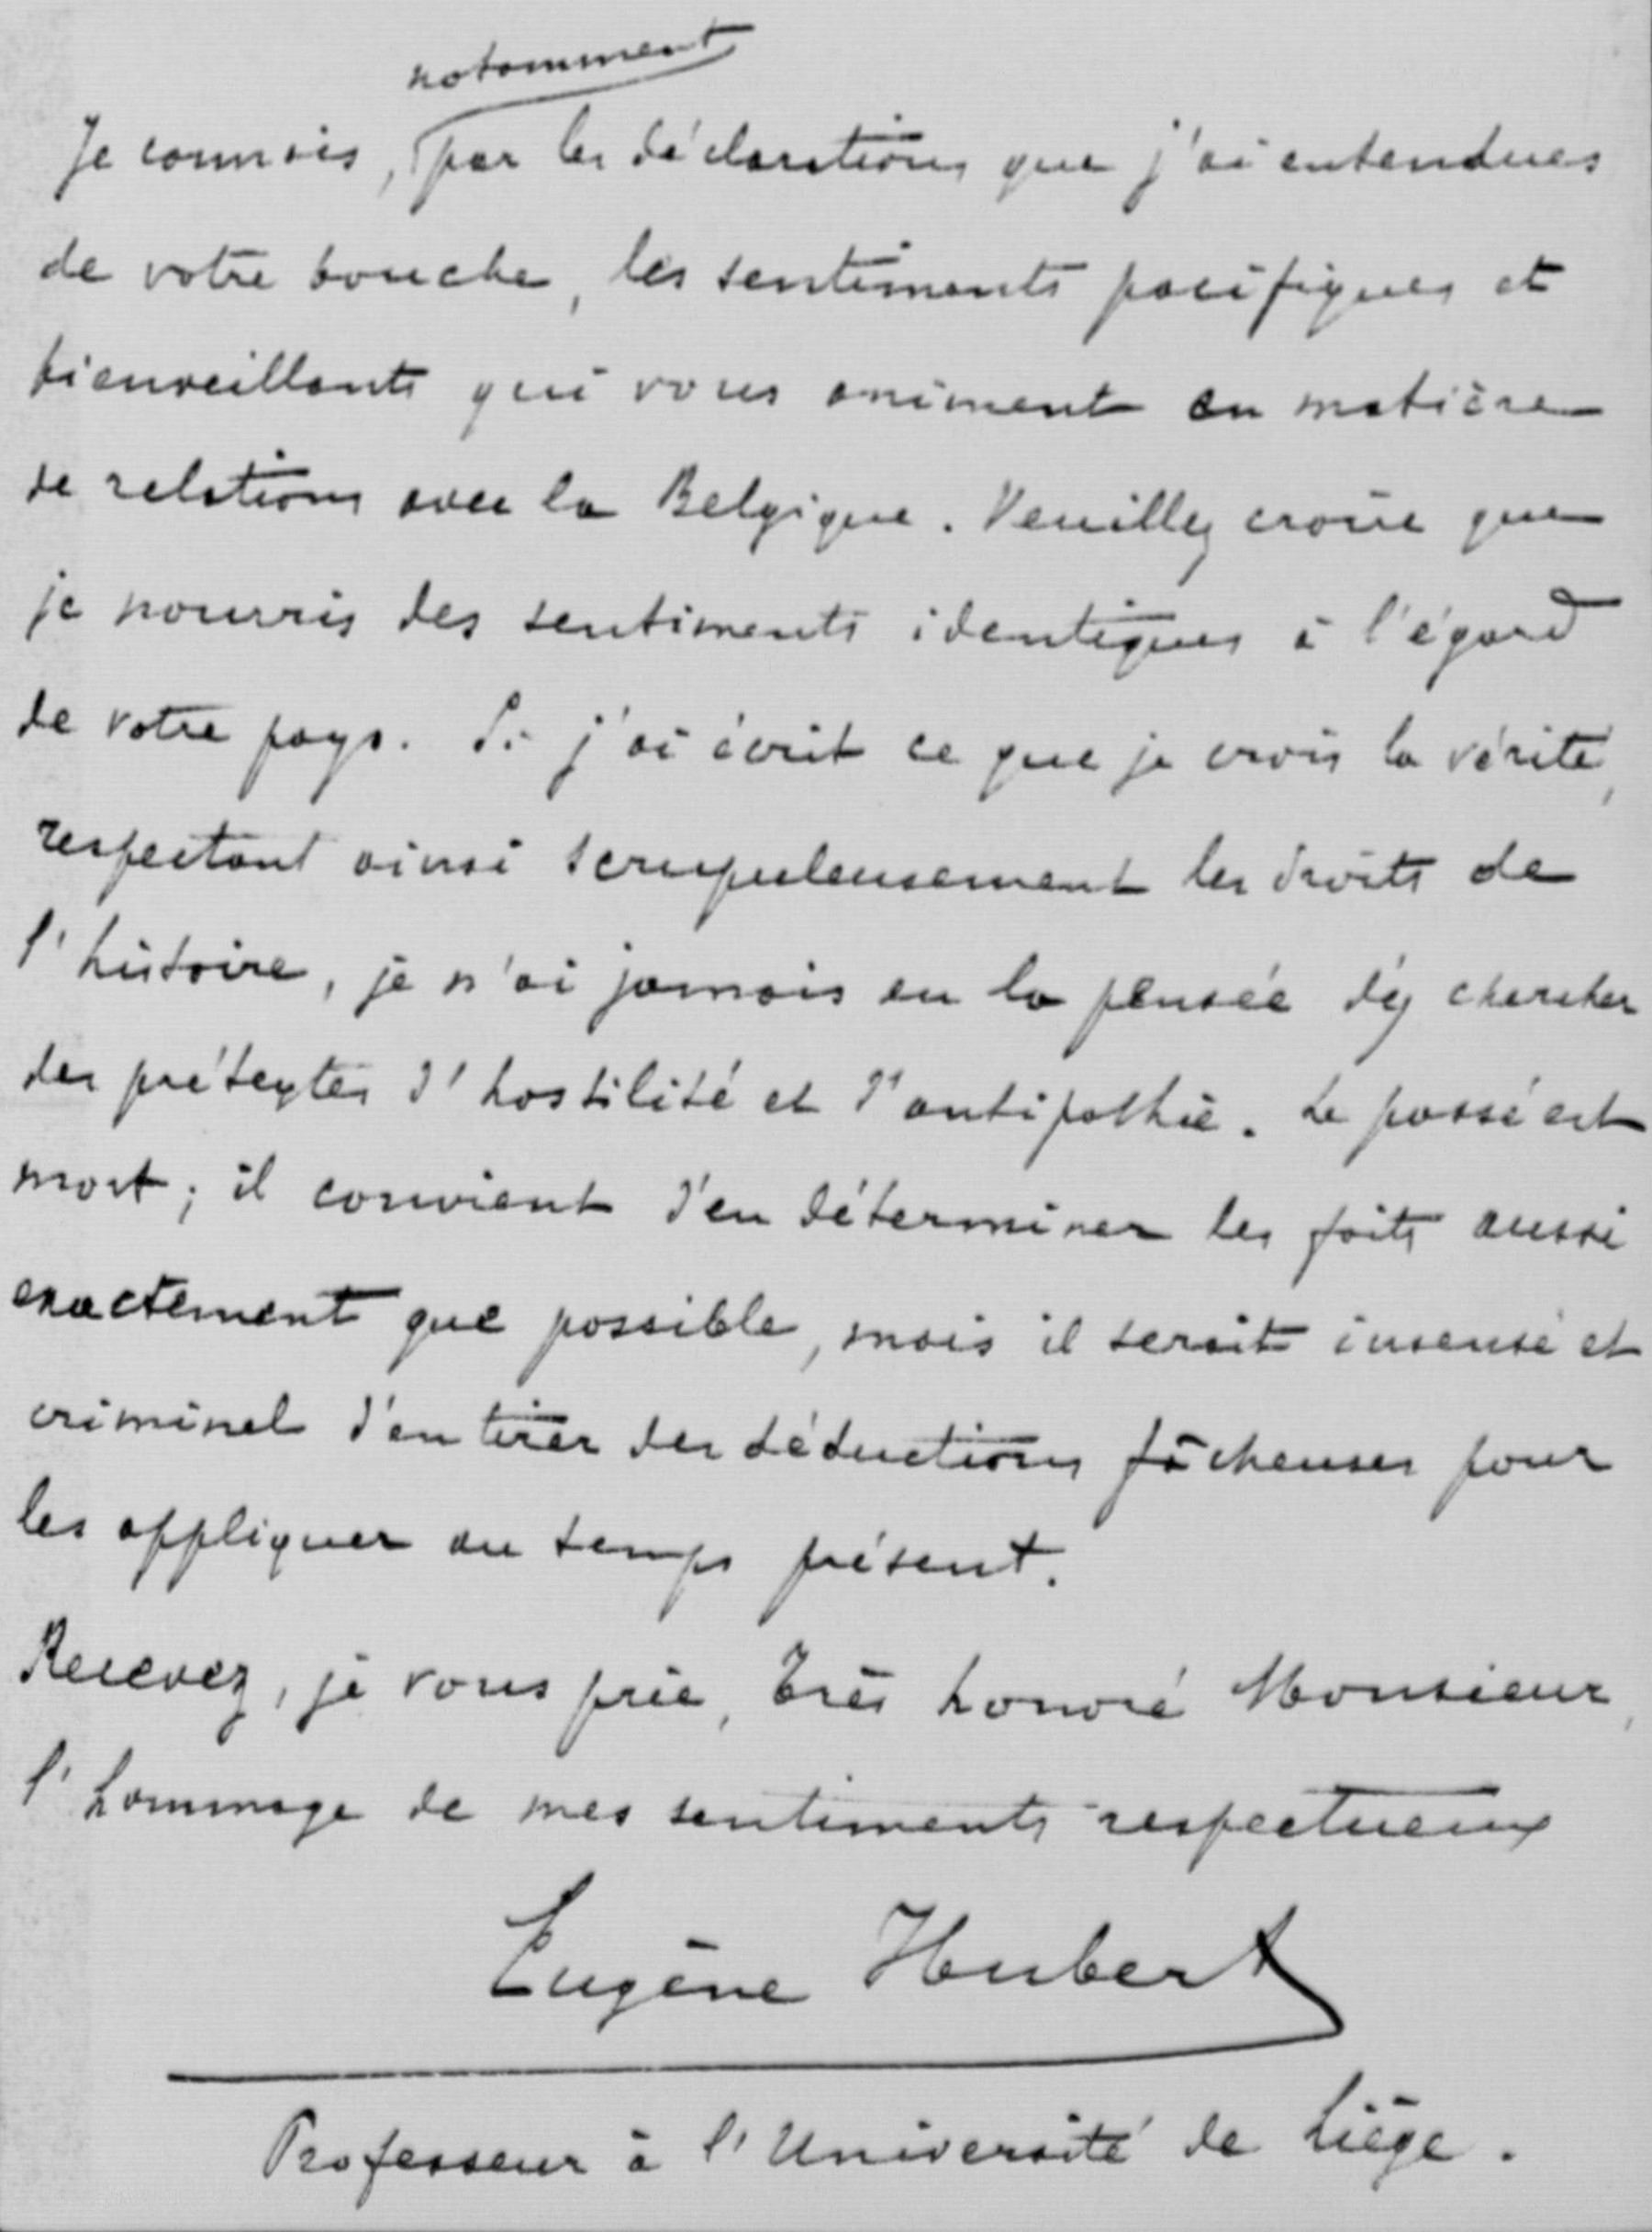 notamment
Je connais, par les déclarations que j'ai entendues
de votre bouche, les sentiments pacifiques et
bienveillants qui vous animent en matière
de relations avec la Belgique. Veuillez croire que
je nourris des sentiments identiques à l'égard
de votre pays. Si j'ai écrit ce que je crois la vérité,
respectant ainsi scrupuleusement les droits de
l'histoire, je n'ai jamais eu la pensée d'y chercher
des prétextes d'hostilité et d'antipathie. Le passé est
mort; il convient d'en déterminer les faits aussi
exactement que possible, mais il serait insensé et
criminel d'en tirer des déductions fâcheuses pour
les appliquer au temps présent.
Recevez, je vous prie, très honoré Monsieur,
l'hommage de mes sentiments respectueux
Eugène Hubert
Professeur à l'Université de Liège.